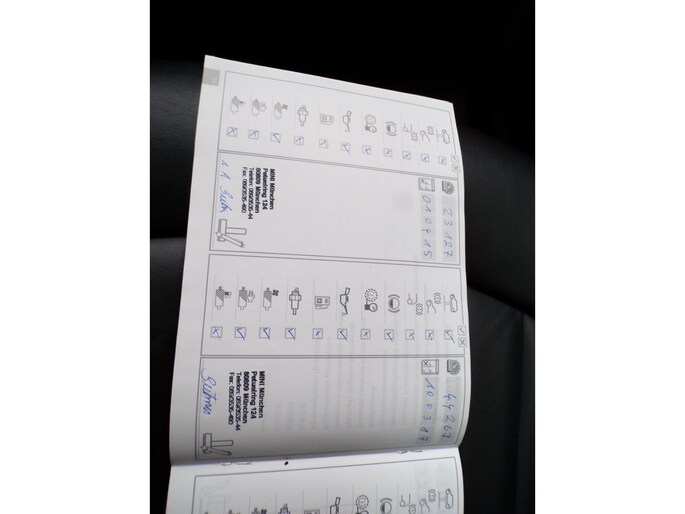 23187
010715
MINI München
Petuelring 124
80809 München
Telefon: 089/3535-44
Fax: 089/3535-490
44267
100317
MINI München
Petuelring 124
80809 München
Telefon: 089/3535-44
Fax: 089/3535-490